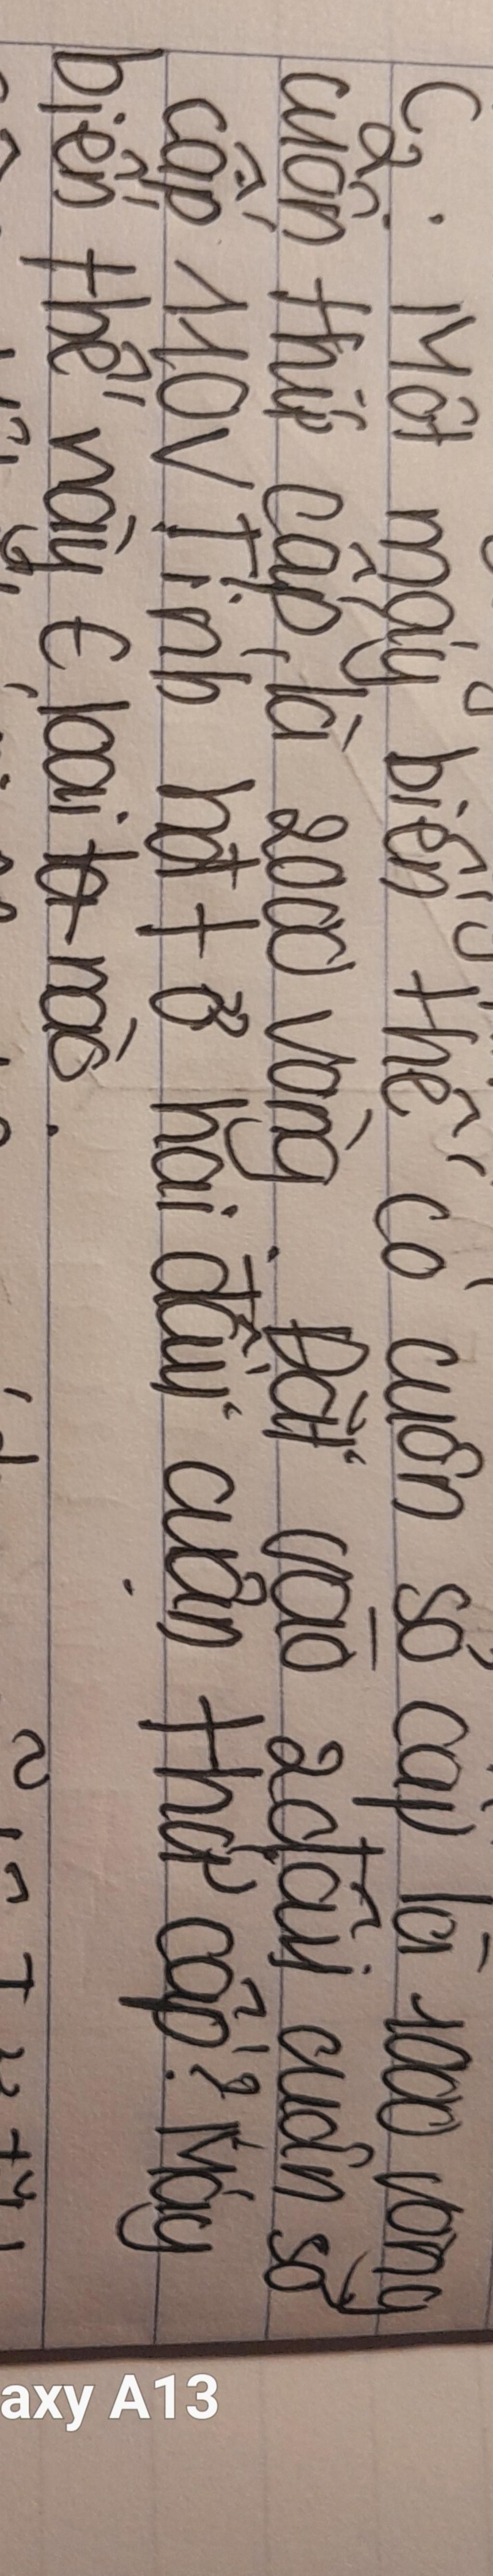 C2. Một máy biến thế có cuộn sơ cấp là 1000 vòng
cuộn thứ cấp, là 2000 vòng. Đặt vào 2 đầu cuộn sơ
cấp 110V Tính hđt ở hai đầu cuộn thứ cấp? Máy
biến thế này € loại nào.
axy A13